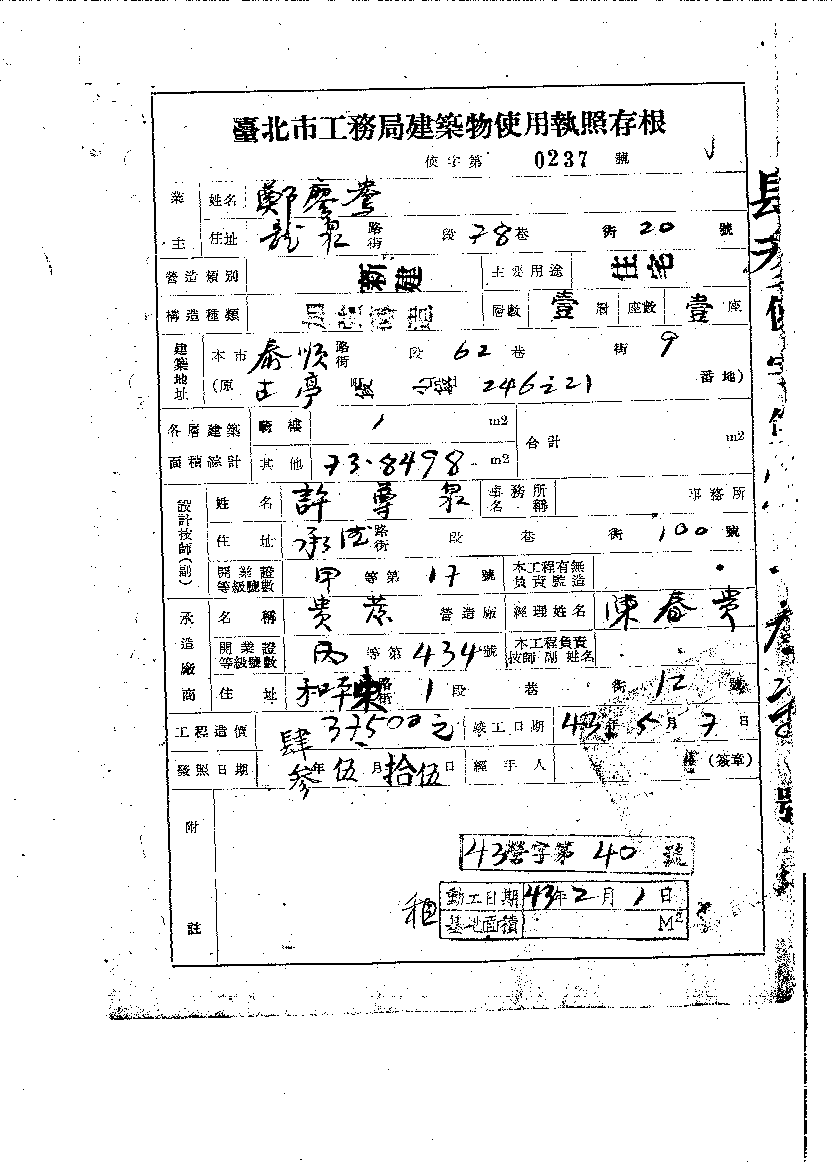 臺北市工務局建築物使用執照存根
使字第 0237 號
業主 姓名 鄭廖鴦
住址 龍泉 路街 段 78巷 街 20 號
營造類別 新建 主要用途 住宅
構造種類 加強磚造 層數 壹 層 座數 壹 座
建築地址 本市 泰順 路街 段 62 巷 街 9
(原 古亭 246之21 番地)
各層建築面積綜計 騎樓 m2 合計 m2
其他 73.8498 m2
設計技師(副) 姓名 許尊泉 事務所名稱 事務所
住址 承德 路街 段 巷 街 100 號
開業證等級號數 甲 等第 17 號 本工程有無負責監造
承造廠商 名稱 貴 營造廠 經理姓名 陳春貴
開業證等級號數 丙 等第 434 號 本工程負責技師副姓名
住址 和平東 路街 1 段 巷 街 12 號
工程造價 37500元 竣工日期 43年5月7日
發照日期 肆參年伍月拾伍日 經手人 (簽章)
附註
43營字第 40 號
動工日期 43年2月1日
基地面積 M2